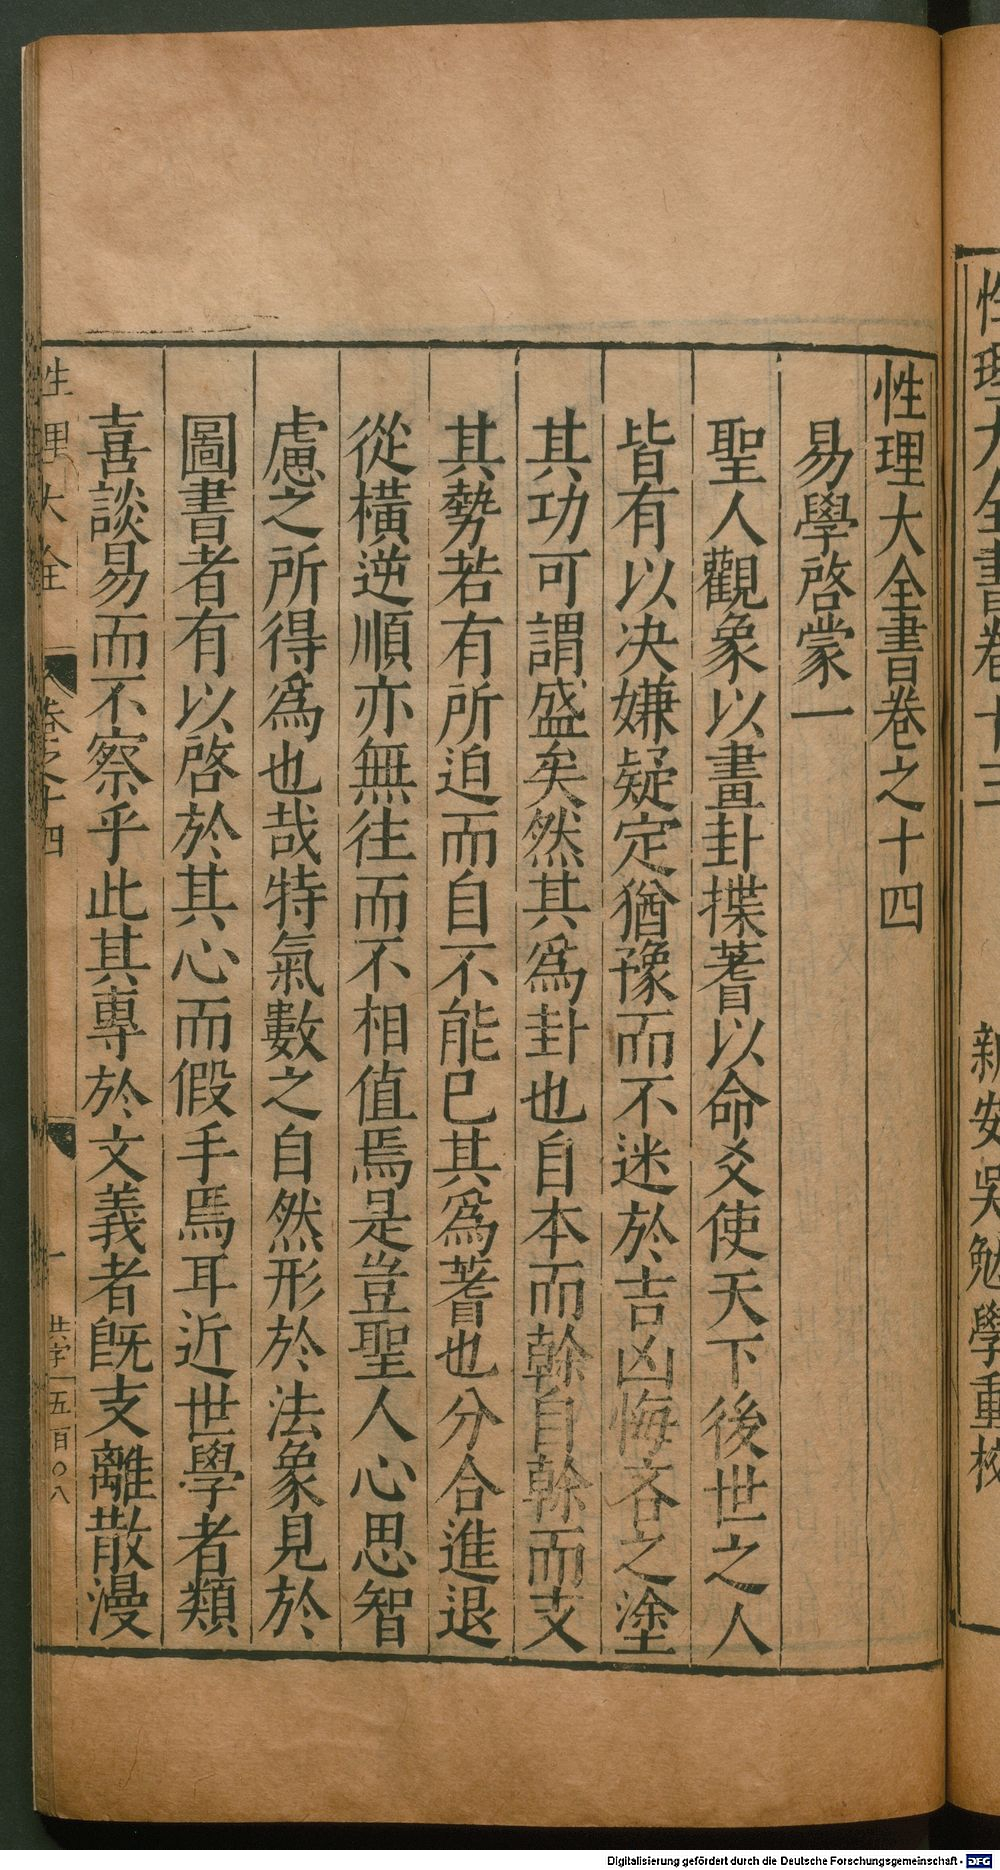 性理大全書卷十三
新安吳勉學重校
性理大全書卷之十四
易學啓蒙一
聖人觀象以畫卦揲蓍以命爻使天下後世之人
皆有以決嫌疑定猶豫而不迷於吉凶悔吝之塗
其功可謂盛矣然其爲卦也自本而幹自幹而支
其勢若有所迫而自不能已其爲蓍也分合進退
從橫逆順亦無往而不相值焉是豈聖人心思智
慮之所得爲也哉特氣數之自然形於法象見於
圖書者有以啓於其心而假手焉耳近世學者類
喜談易而不察乎此其專於文義者旣支離散漫
性理大全 卷之十四 一 共字五百〇八
Digitalisierung gefördert durch die Deutsche Forschungsgemeinschaft - DFG